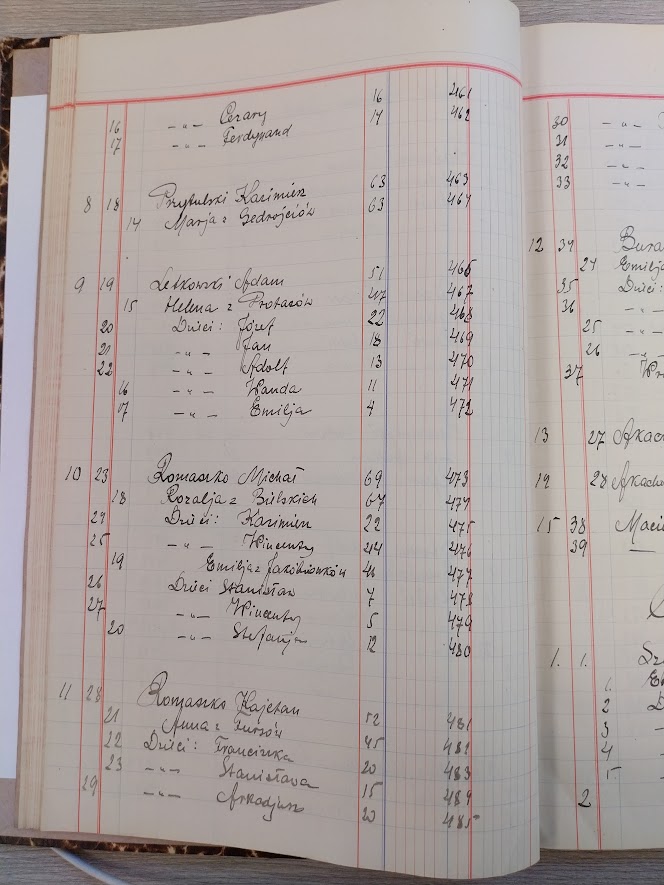 16 -"- Cezary 16 461
17 -"- Ferdynand 14 462
8 18 Przytulski Kazimierz 63 463
14 Marja z Giedrojciów 63 464
9 19 Letkowski Adam 51 466
15 Helena z Protasów 47 467
20 Dzieci: Józef 22 468
21 -"- Jan 18 469
22 -"- Adolf 13 470
16 -"- Wanda 11 471
17 -"- Emilja 4 472
10 23 Romaszko Michał 69 473
18 Rozalja z Bielskich 67 474
24 Dzieci: Kazimierz 22 475
25 -"- Wincenty 44 476
19 Emilja z Jakóbiowków 46 477
26 Dzieci Stanisław 7 478
27 -"- Wincenty 5 479
20 -"- Stefanja 12 480
11 28 Romaszko Kajetan 52 481
21 Anna z Fursów 45 482
22 Dzieci: Franciszka 20 483
23 -"- Stanisława 15 484
29 -"- Arkadjusz 20 485
30 -"-
31 -"-
32 -"-
33 -"-
12 34 Bura
24 Emilja
35 Dzieci:
36 -"-
25 -"-
26 -"-
37
13 27 Arka
14 28 Arkad
15 38 Maci
39 —
1. 1.
1.
2
3 -
4
5 -
2